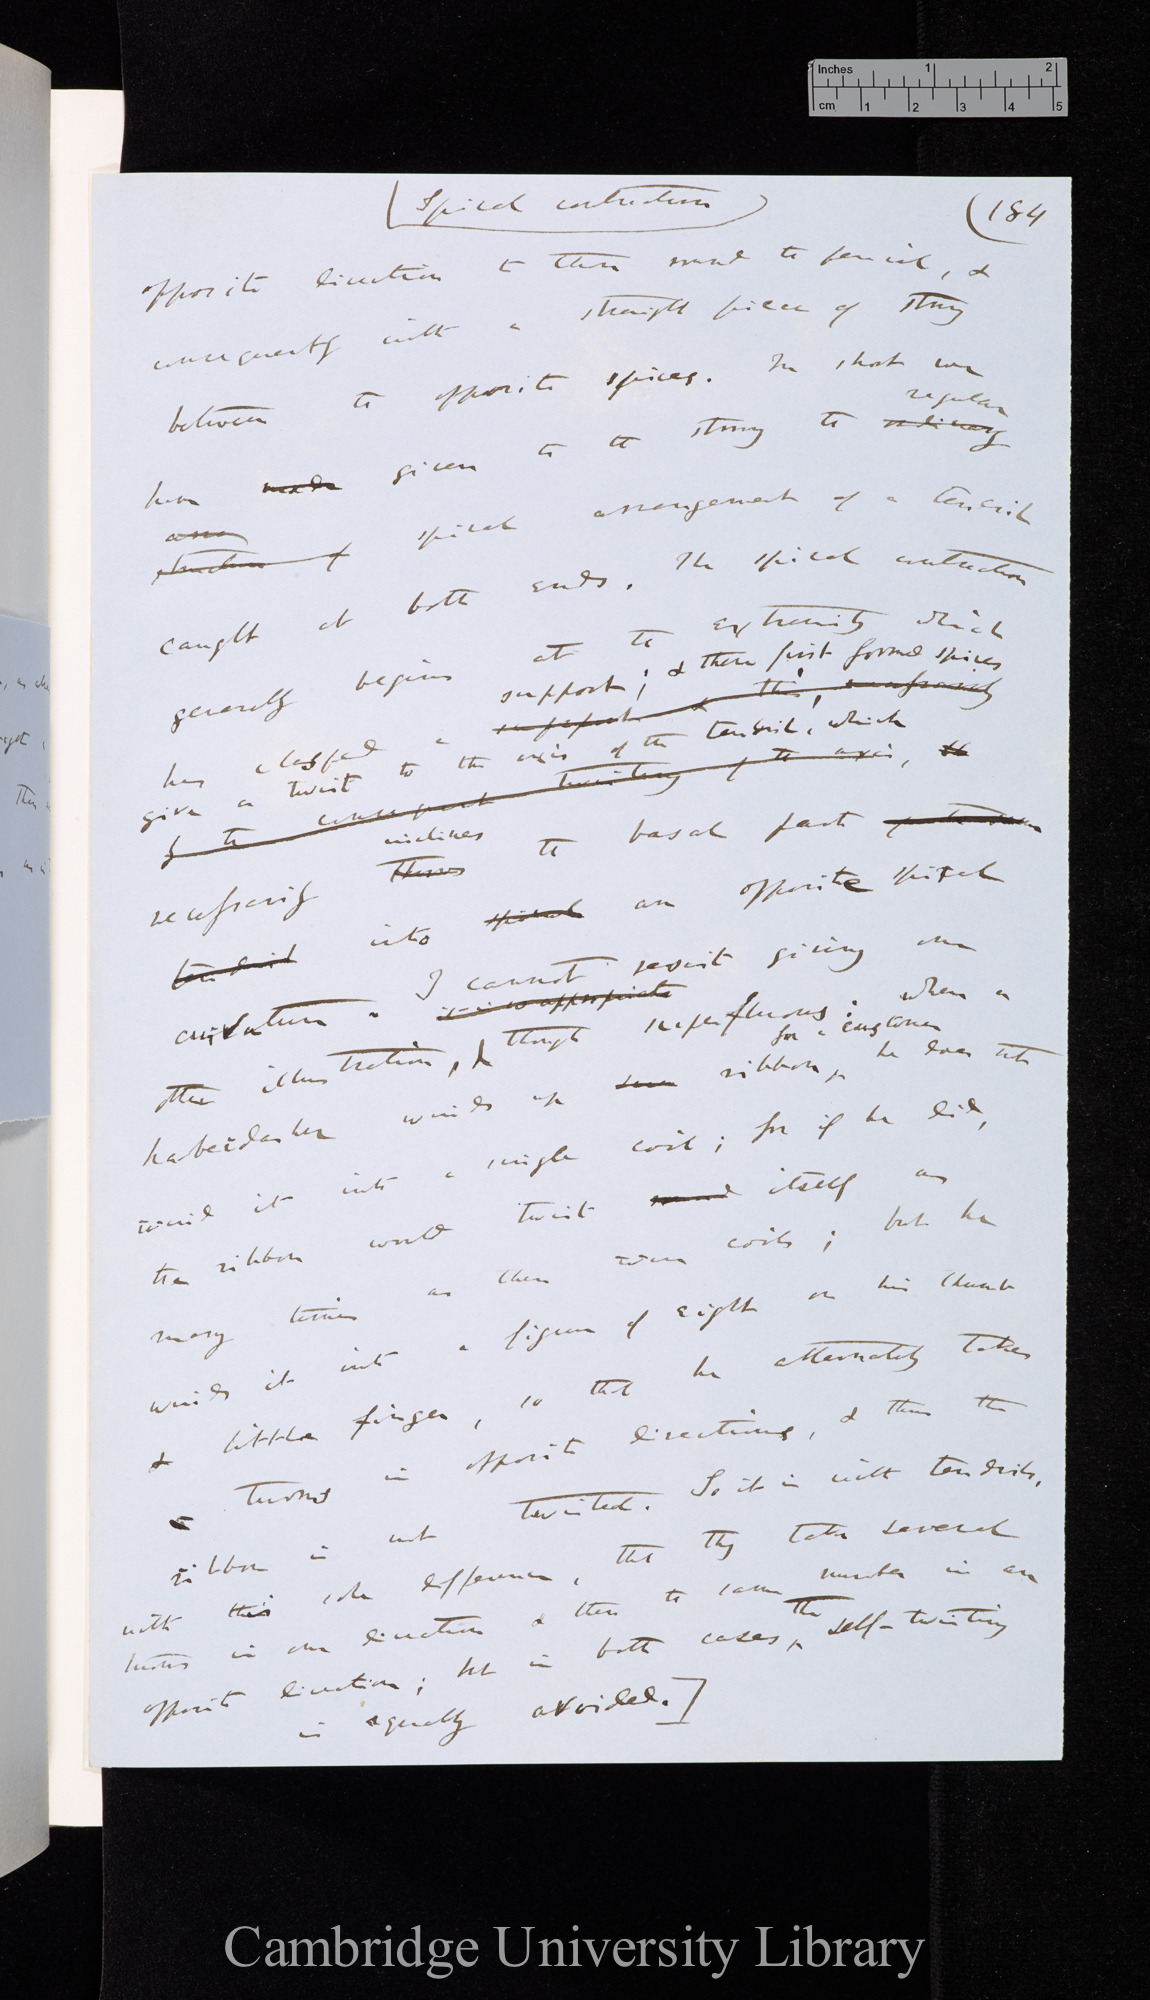 Spiral contraction
(184
opposite direction to those round the pencil, &
consequently with a straight piece of string
between the opposite spires. In short we
regular
have made given to the string the ordinary
structure of spiral arrangement of a tendril
caught at both ends. The spiral contraction
generally begins at the extremity which
support; & these first formed spires
has clasped a support & this, necessarily
give a twist to the axis of the tendril, which
by the consequent twisting of the axis, the
inclines
necessarily throws the basal part
tendril into spiral an opposite spiral
curvature. I cannot resist giving one
other illustration, though superfluous: when a
for a customer
haberdasher winds up some ribbon, he does not
wind it into a single coil; for if he did,
the ribbon would twist round itself as
many times as there were coils; but he
winds it into a figure of eight on his thumb
& little finger, so that he alternately takes
turns in opposite directions, & thus the
ribbon is not twisted. So it is with tendrils,
with this sole difference, that they take several
turns in one direction & then the same number in an
opposite direction; but in both cases, the self-twisting
is equally avoided.]
Inches 1 2
cm 1 2 3 4 5
Cambridge University Library